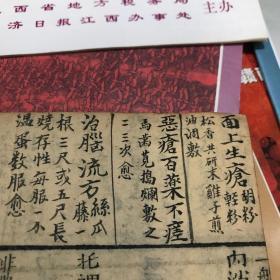 西省地方税务局
济日报江西办事处
主办
面上生瘡 胡粉 輕粉
松香共研末雞子煎
油調敷
惡瘡百藥不痊
馬齒莧搗爛敷之
三次愈
治腦流方絲瓜藤一
根三尺或五尺長
燒存性每服一
数服愈